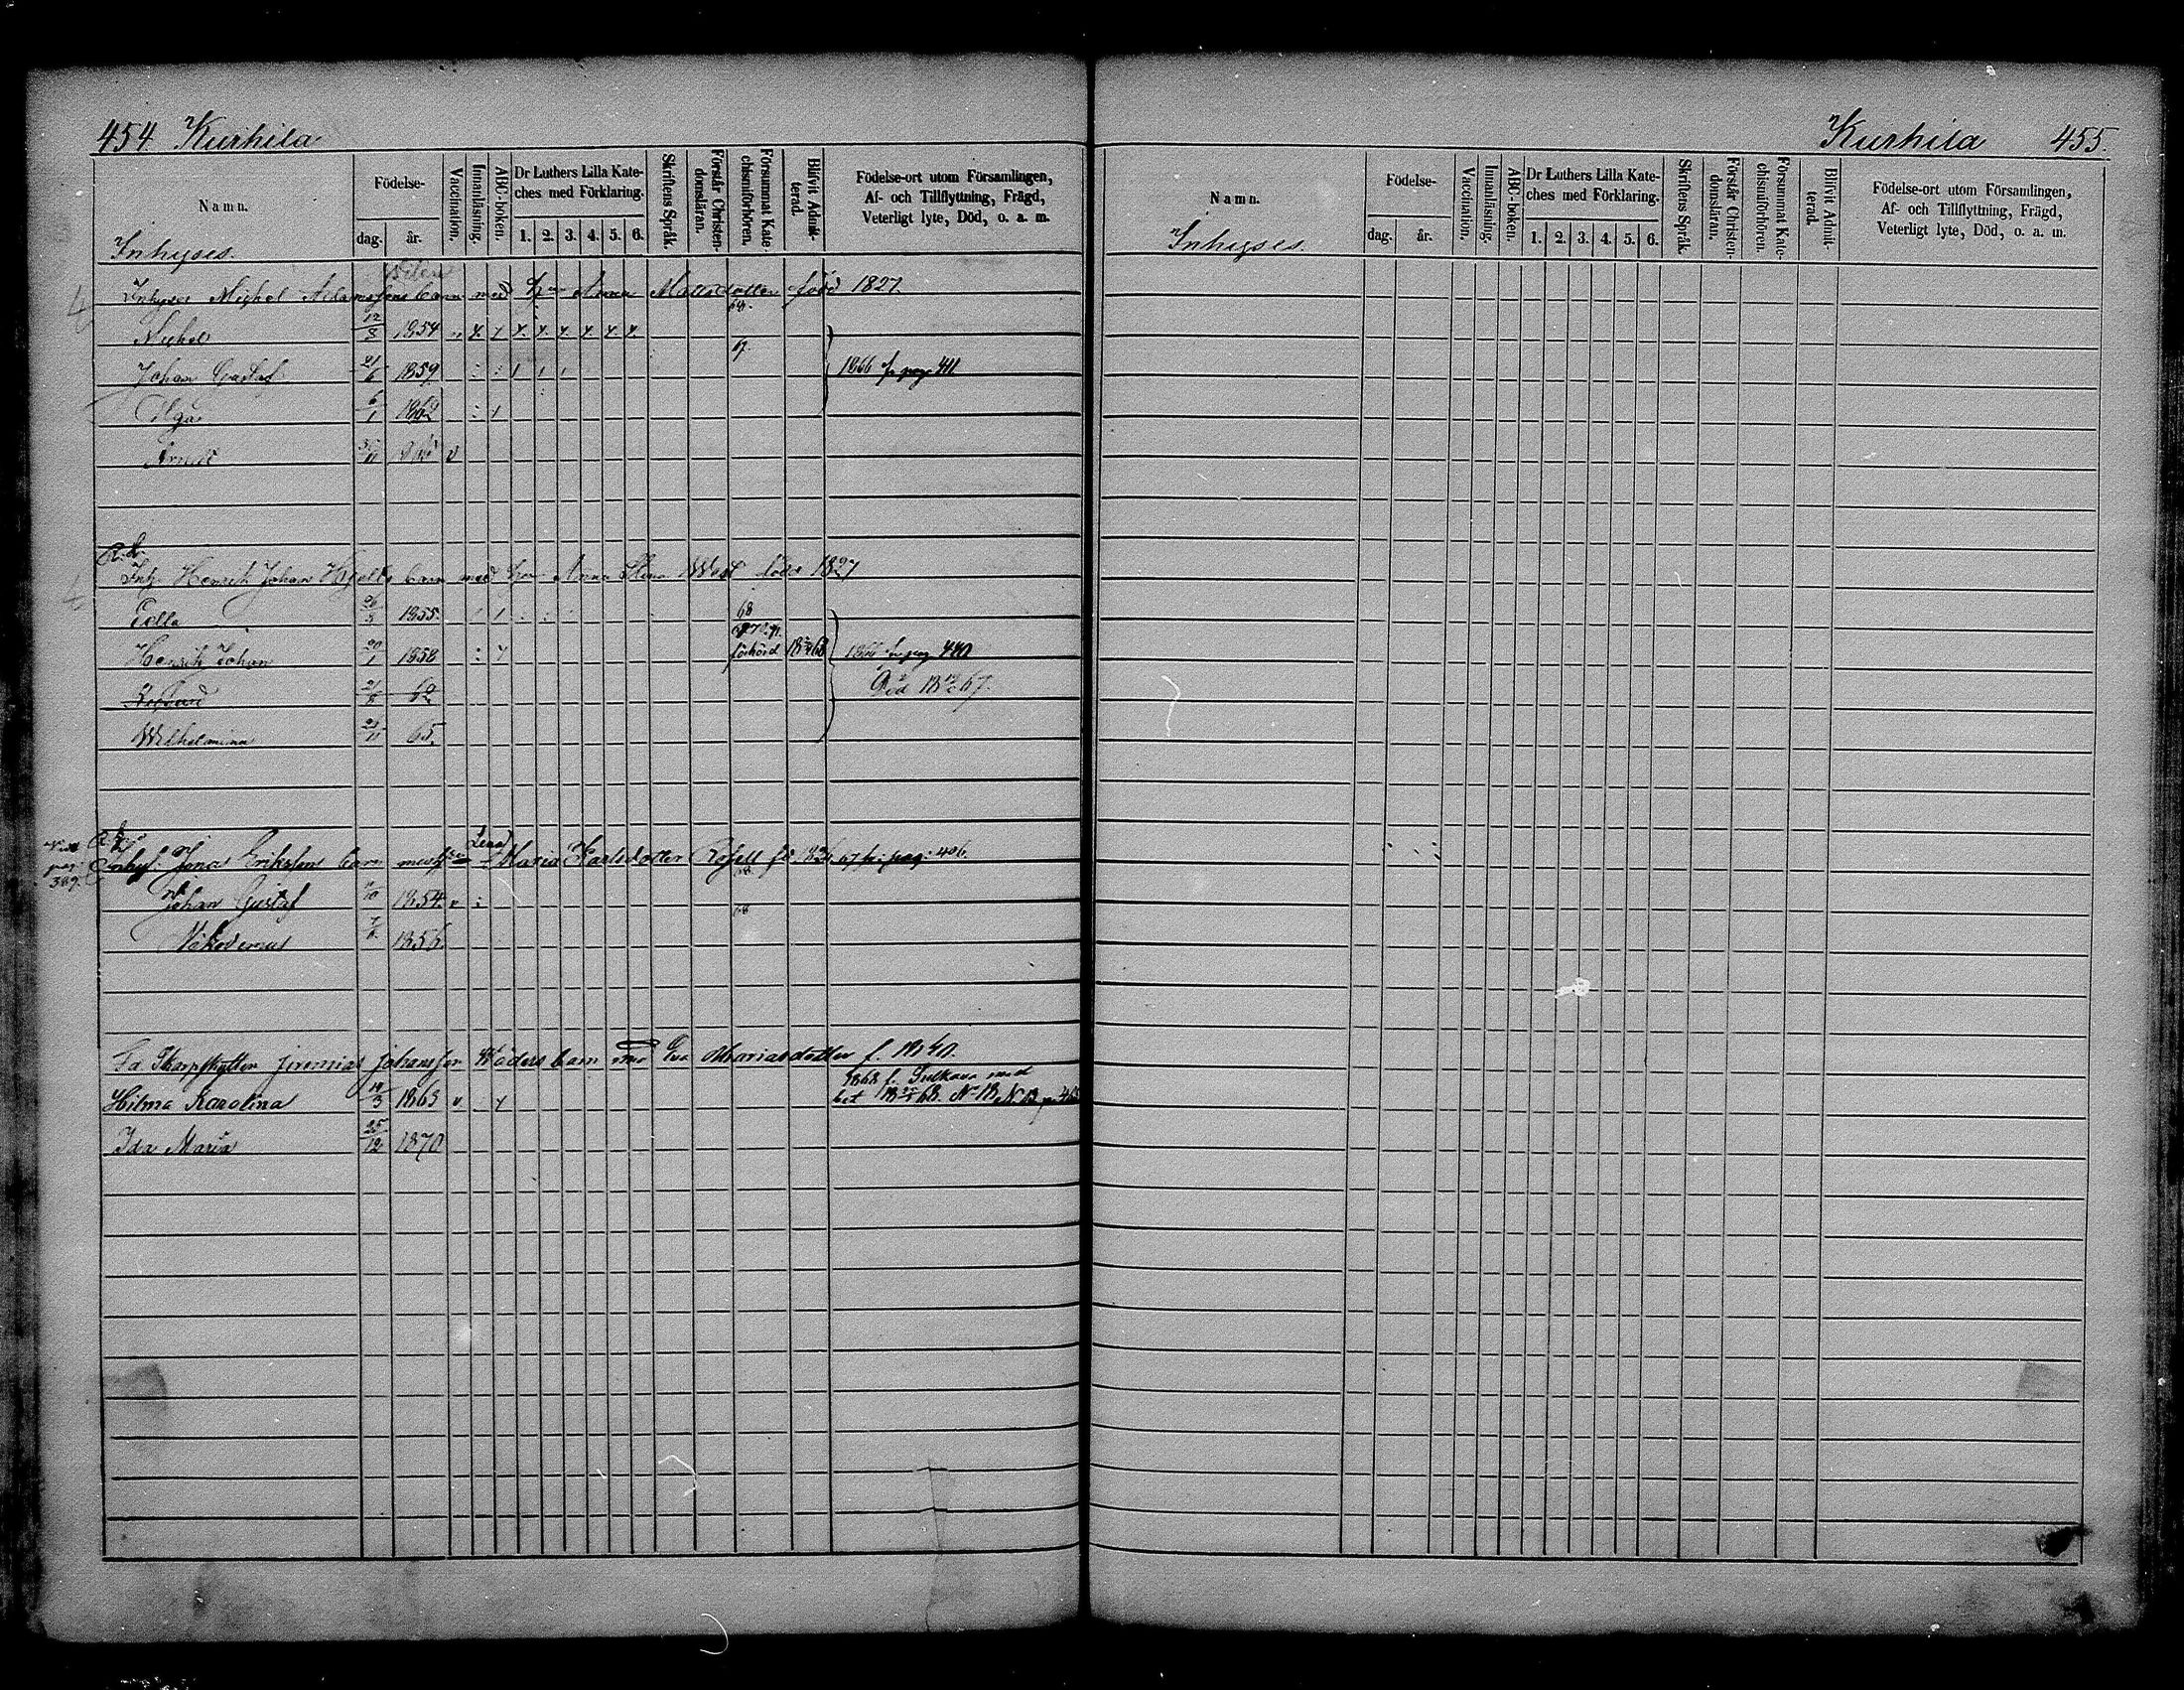 454 Kurhila
Namn. Födelse- dag. år. Vaccination. Innanläsning. ABC-boken. Dr Luthers Lilla Kateches med Förklaring. 1. 2. 3. 4. 5. 6. Skriftens Språk. Förstår Christendomsläran. Försummat Katechismiförhören. Blifvit Admitterad. Födelse-ort utom Församlingen, Af- och Tillflyttning, Frägd, Veterligt lyte, Död, o. a. m.
Inhyses
Inhyses Michel Adamssons barn med hu Anna Mattsdotter född 1827
68.
Michel 12/8 1854
Johan Gustaf 21/6 1859 1866 fr pag 411
Olga 6/1 1862
Inh. Henrik Johan barn med hu Anna Stina född 1827
26/3 1855. 68
Henrik Johan 20/1 1858 förhörd 440
62 Död 67.
Wilhelmina 65.
pag: 369.
Lena
Inhys. Jonas Erikssons barn med Maria Karlsdotter 67 fr. pag: 406.
Johan Gustaf 1854 v 68
Nikodemus 1856
Jeremias Johansson barn med Eva Mariasdotter f. 1840.
1868 f. Sulkava med
Hilma Karolina 1863 v bet 68. No 18
Ida Maria 25/12 1870
Kurhila 455.
Namn. Födelse- dag. år. Vaccination. Innanläsning. ABC-boken. Dr Luthers Lilla Kateches med Förklaring. 1. 2. 3. 4. 5. 6. Skriftens Språk. Förstår Christendomsläran. Försummat Katechismiförhören. Blifvit Admitterad. Födelse-ort utom Församlingen, Af- och Tillflyttning, Frägd, Veterligt lyte, Död, o. a. m.
Inhyses.